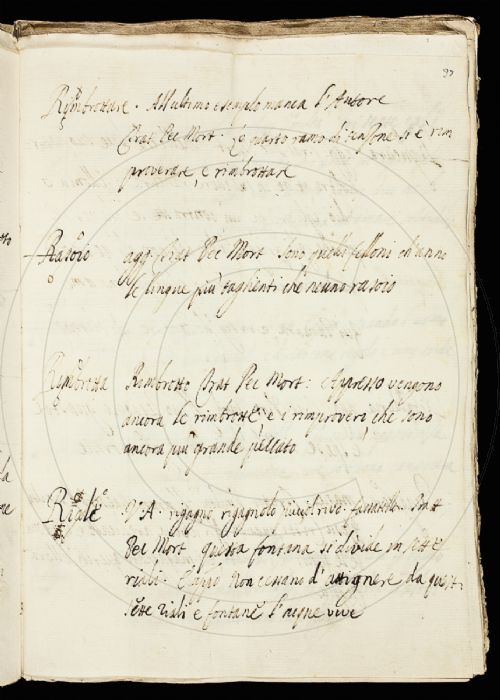 97
Rimbrottare. All ultimo esemplo manca l'Autore
Trat Pec Mort. Lo quarto ramo di tensone si è rim
proverare, e rimbrottare
Rasoio agg. Trat Pec Mort Sono quelli felloni ch'anno
le lingue più taglienti che neuno rasoio
Rimbrotta Rimbrotto Trat Pec Mort: Appresso vengono
ancora le rimbrotte, e i rimproveri, che sono
ancora più grande peccato
Riale V.A. rigagno, rigagnolo Trat
Pec Mort questa fontana si divide in sette
riali. E non cessano d'attignere da quest.
sette riali e fontane l'acque vive